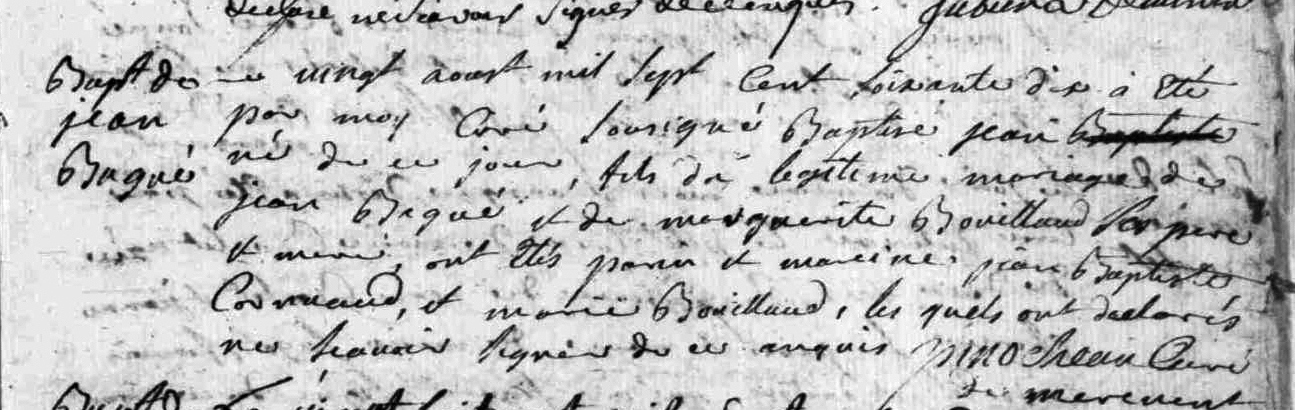 declare ne scavoir signer de ce enquis.
Bapt de
jean
Buqué
ce vingt aoust mil sept cent soixante dix a été
par moy Curé sousigné Baptisé jean Baptiste
né de ce jour, fils du legitime mariage de
jean Biqué et de marguerite Bouillaud ses pere
et mere, ont étés parin et marine jean Baptiste
et marie Bouillaud, les quels ont declarés
ne scavoir signer de ce enquis pinocheau Curé
de mervent